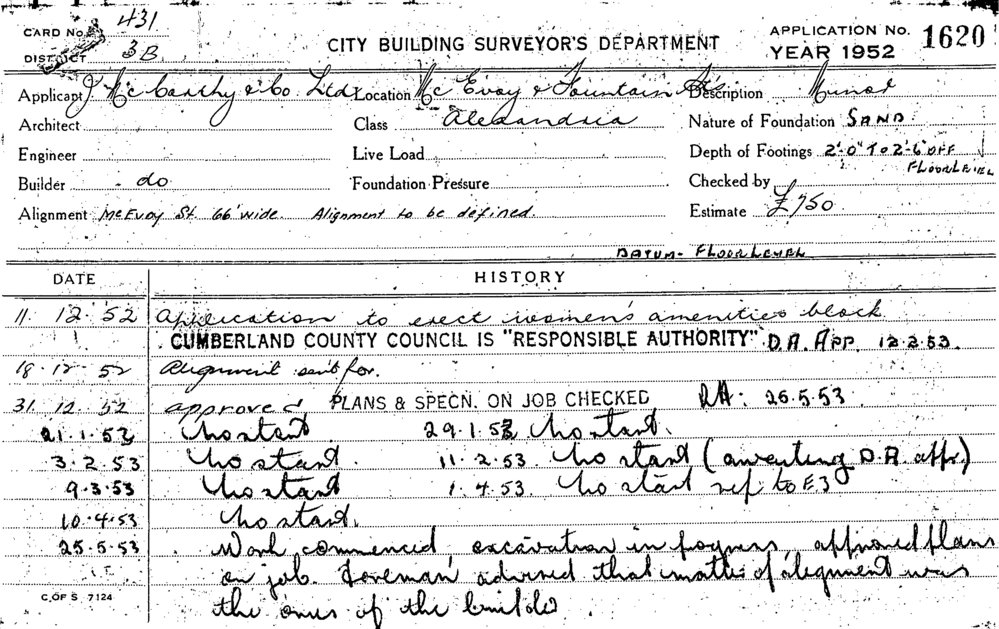 CARD No. 431
DISTRICT 3B
CITY BUILDING SURVEYOR'S DEPARTMENT
APPLICATION No. 1620
YEAR 1952
Applicant J McCarthy & Co. Ltd. Location McEvoy & Fountain Sts Description Minor
Architect Class Alexandria Nature of Foundation SAND.
Engineer Live Load Depth of Footings 2'-0" TO 2'-6" OFF
FLOOR LEVEL
Builder do Foundation Pressure Checked by
Alignment McEvoy St. 66' wide. Alignment to be defined. Estimate £750
DATUM - FLOOR LEVEL
DATE HISTORY
11. 12. 52 Application to erect women's amenities block
CUMBERLAND COUNTY COUNCIL IS "RESPONSIBLE AUTHORITY" D.A. APP. 12.2.53.
18. 12. 52 Alignment sent for.
31. 12. 52 approved PLANS & SPECN. ON JOB CHECKED 25.5.53.
21.1.53 No start 29.1.53 No start.
3.2.53 No start. 11.2.53 No start (awaiting D.A. app.)
9.3.53 No start 1.4.53. No start ref to E3
10.4.53 No start.
25.5.53 Work commenced, excavation in progress, approved plans
on job. Foreman advised that matter of alignment was
the onus of the builder.
C. OF S. 7124